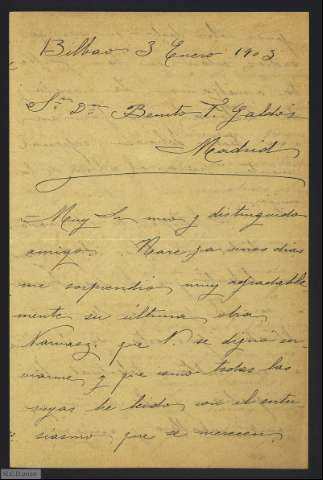 Bilbao 3 Enero 1903
Sr. Dn. Benito P. Galdós
Madrid
Muy Sr. mio y distinguido
amigo. Hace ya unos dias
me sorprendió muy agradable
mente su última obra
Narvaez, que V. se dignó en
viarme y que como todas las
suyas he leido con el entu
siasmo que se merecen.